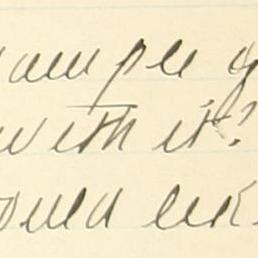 ample
with it?
ould like